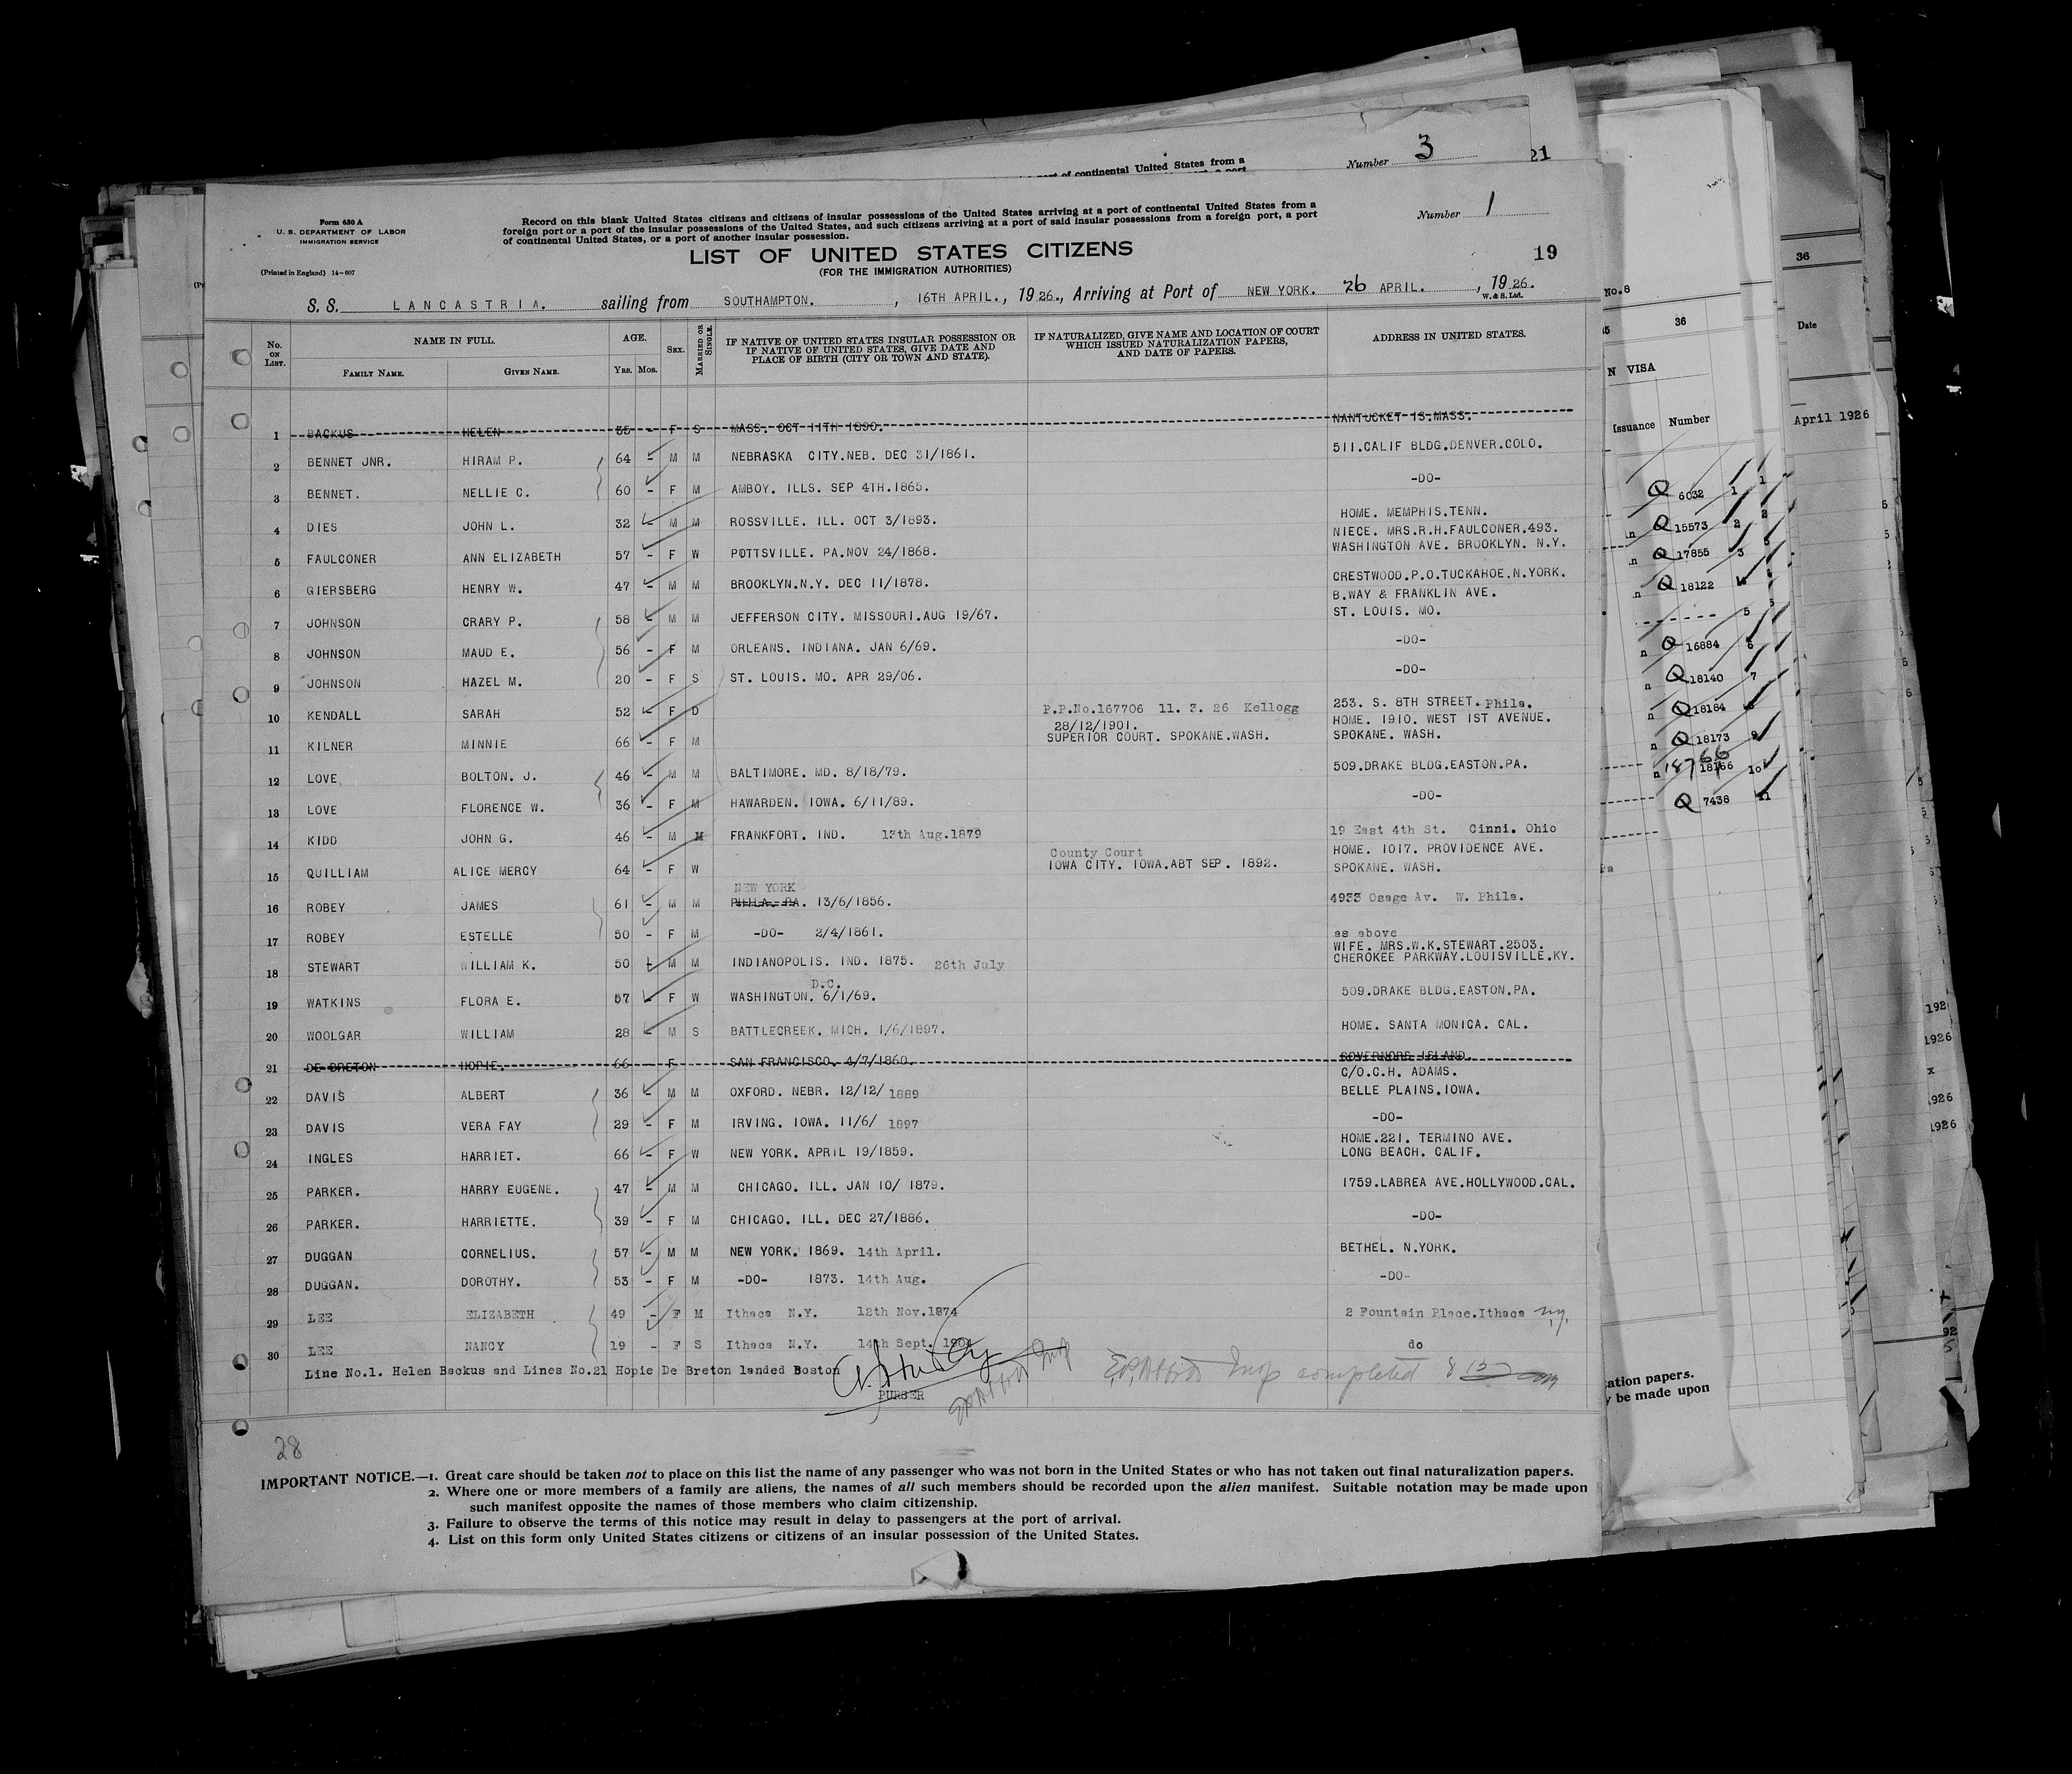 Number 3 21
port of continental United States from a
Form 630 A
U. S. DEPARTMENT OF LABOR
IMMIGRATION SERVICE
(Printed in England) 14-607
Record on this blank United States citizens and citizens of insular possessions of the United States arriving at a port of continental United States from a
foreign port or a port of the insular possessions of the United States, and such citizens arriving at a port of said insular possessions from a foreign port, a port
of continental United States, or a port of another insular possession.
Number 1
LIST OF UNITED STATES CITIZENS
(FOR THE IMMIGRATION AUTHORITIES)
19
S.S. LANCASTRIA. sailing from SOUTHAMPTON. , 16TH APRIL., 1926., Arriving at Port of NEW YORK. 26 APRIL. , 1926.
W. & S. Ltd.
No. ON LIST. NAME IN FULL. AGE. SEX. MARRIED OR SINGLE. IF NATIVE OF UNITED STATES INSULAR POSSESSION OR IF NATIVE OF UNITED STATES, GIVE DATE AND PLACE OF BIRTH (CITY OR TOWN AND STATE). IF NATURALIZED, GIVE NAME AND LOCATION OF COURT WHICH ISSUED NATURALIZATION PAPERS, AND DATE OF PAPERS. ADDRESS IN UNITED STATES.
FAMILY NAME. GIVEN NAME. YRS. MOS.
1 BACKUS HELEN 35 - F S MASS. OCT 11TH 1890. NANTUCKET IS.MASS.
2 BENNET JNR. HIRAM P. 64 - M M NEBRASKA CITY.NEB. DEC 31/1861. 511.CALIF BLDG.DENVER.COLO.
3 BENNET. NELLIE C. 60 - F M AMBOY. ILLS. SEP 4TH.1865. -DO-
4 DIES JOHN L. 32 - M M ROSSVILLE. ILL. OCT 3/1893. HOME. MEMPHIS.TENN.
5 FAULCONER ANN ELIZABETH 57 - F W POTTSVILLE. PA.NOV 24/1868. NIECE. MRS.R.H.FAULCONER.493.
WASHINGTON AVE. BROOKLYN. N.Y.
6 GIERSBERG HENRY W. 47 - M M BROOKLYN.N.Y. DEC 11/1878. CRESTWOOD.P.O.TUCKAHOE.N.YORK.
7 JOHNSON CRARY P. 58 - M M JEFFERSON CITY. MISSOURI.AUG 19/67. B.WAY & FRANKLIN AVE.
ST. LOUIS. MO.
8 JOHNSON MAUD E. 56 - F M ORLEANS. INDIANA. JAN 6/69. -DO-
9 JOHNSON HAZEL M. 20 - F S ST. LOUIS. MO. APR 29/06. -DO-
10 KENDALL SARAH 52 - F D P.P.No.167706 11. 3. 26 Kellogg 253. S. 8TH STREET. Phila.
11 KILNER MINNIE 66 - F M 28/12/1901. HOME. 1910. WEST 1ST AVENUE.
SUPERIOR COURT. SPOKANE.WASH. SPOKANE. WASH.
12 LOVE BOLTON. J. 46 - M M BALTIMORE. MD. 8/18/79. 509.DRAKE BLDG.EASTON.PA.
13 LOVE FLORENCE W. 36 - F M HAWARDEN. IOWA. 6/11/89. -DO-
14 KIDD JOHN G. 46 - M M FRANKFORT. IND. 12th Aug.1879 19 East 4th St. Cinni. Ohio
15 QUILLIAM ALICE MERCY 64 - F W County Court HOME. 1017. PROVIDENCE AVE.
IOWA CITY. IOWA.ABT SEP. 1892. SPOKANE. WASH.
NEW YORK
16 ROBEY JAMES 61 - M M PHILA. PA. 13/6/1856. 4933 Osage Av. W. Phila.
17 ROBEY ESTELLE 50 - F M -DO- 2/4/1861. as above
18 STEWART WILLIAM K. 50 - M M INDIANOPOLIS. IND. 1875. 26th July WIFE. MRS.W.K.STEWART.2503.
CHEROKEE PARKWAY.LOUISVILLE.KY.
D.C.
19 WATKINS FLORA E. 57 - F W WASHINGTON. 6/1/69. 509.DRAKE BLDG.EASTON.PA.
20 WOOLGAR WILLIAM 28 - M S BATTLECREEK. MICH. 1/6/1897. HOME. SANTA MONICA. CAL.
21 DE BRETON HOPIE. 66 - F SAN FRANCISCO. 4/7/1860. GOVERNORS ISLAND.
22 DAVIS ALBERT 36 - M M OXFORD. NEBR. 12/12/ 1889 C/O.C.H. ADAMS.
BELLE PLAINS.IOWA.
23 DAVIS VERA FAY 29 - F M IRVING. IOWA. 11/6/ 1897 -DO-
24 INGLES HARRIET. 66 - F W NEW YORK. APRIL 19/1859. HOME.221. TERMINO AVE.
LONG BEACH. CALIF.
25 PARKER. HARRY EUGENE. 47 - M M CHICAGO. ILL. JAN 10/ 1879. 1759.LABREA AVE.HOLLYWOOD.CAL.
26 PARKER. HARRIETTE. 39 - F M CHICAGO. ILL. DEC 27/1886. -DO-
27 DUGGAN CORNELIUS. 57 - M M NEW YORK. 1869. 14th April. BETHEL. N.YORK.
28 DUGGAN. DOROTHY. 53 - F M -DO- 1873. 14th Aug. -DO-
29 LEE ELIZABETH 49 - F M Ithaca N.Y. 12th Nov.1874 2 Fountain Place.Ithaca N.Y.
30 LEE NANCY 19 - F S Ithaca N.Y. 14th Sept. do
Line No.1. Helen Backus and Lines No.21 Hopie De Breton landed Boston
PURSER
Insp completed 8
28
IMPORTANT NOTICE.—1. Great care should be taken not to place on this list the name of any passenger who was not born in the United States or who has not taken out final naturalization papers.
2. Where one or more members of a family are aliens, the names of all such members should be recorded upon the alien manifest. Suitable notation may be made upon
such manifest opposite the names of those members who claim citizenship.
3. Failure to observe the terms of this notice may result in delay to passengers at the port of arrival.
4. List on this form only United States citizens or citizens of an insular possession of the United States.
No.8
36
N VISA
Issuance Number
Q 6032 1 1
Q 15573 2 2
Q 17855 3
Q 18122
5
Q 16884 6
Q 18140 7
Q 18184
Q 18173 9
18766 18166 10
Q 7438 11
ation papers.
y be made upon
36
Date
April 1926
192
1926
x
1926
1926